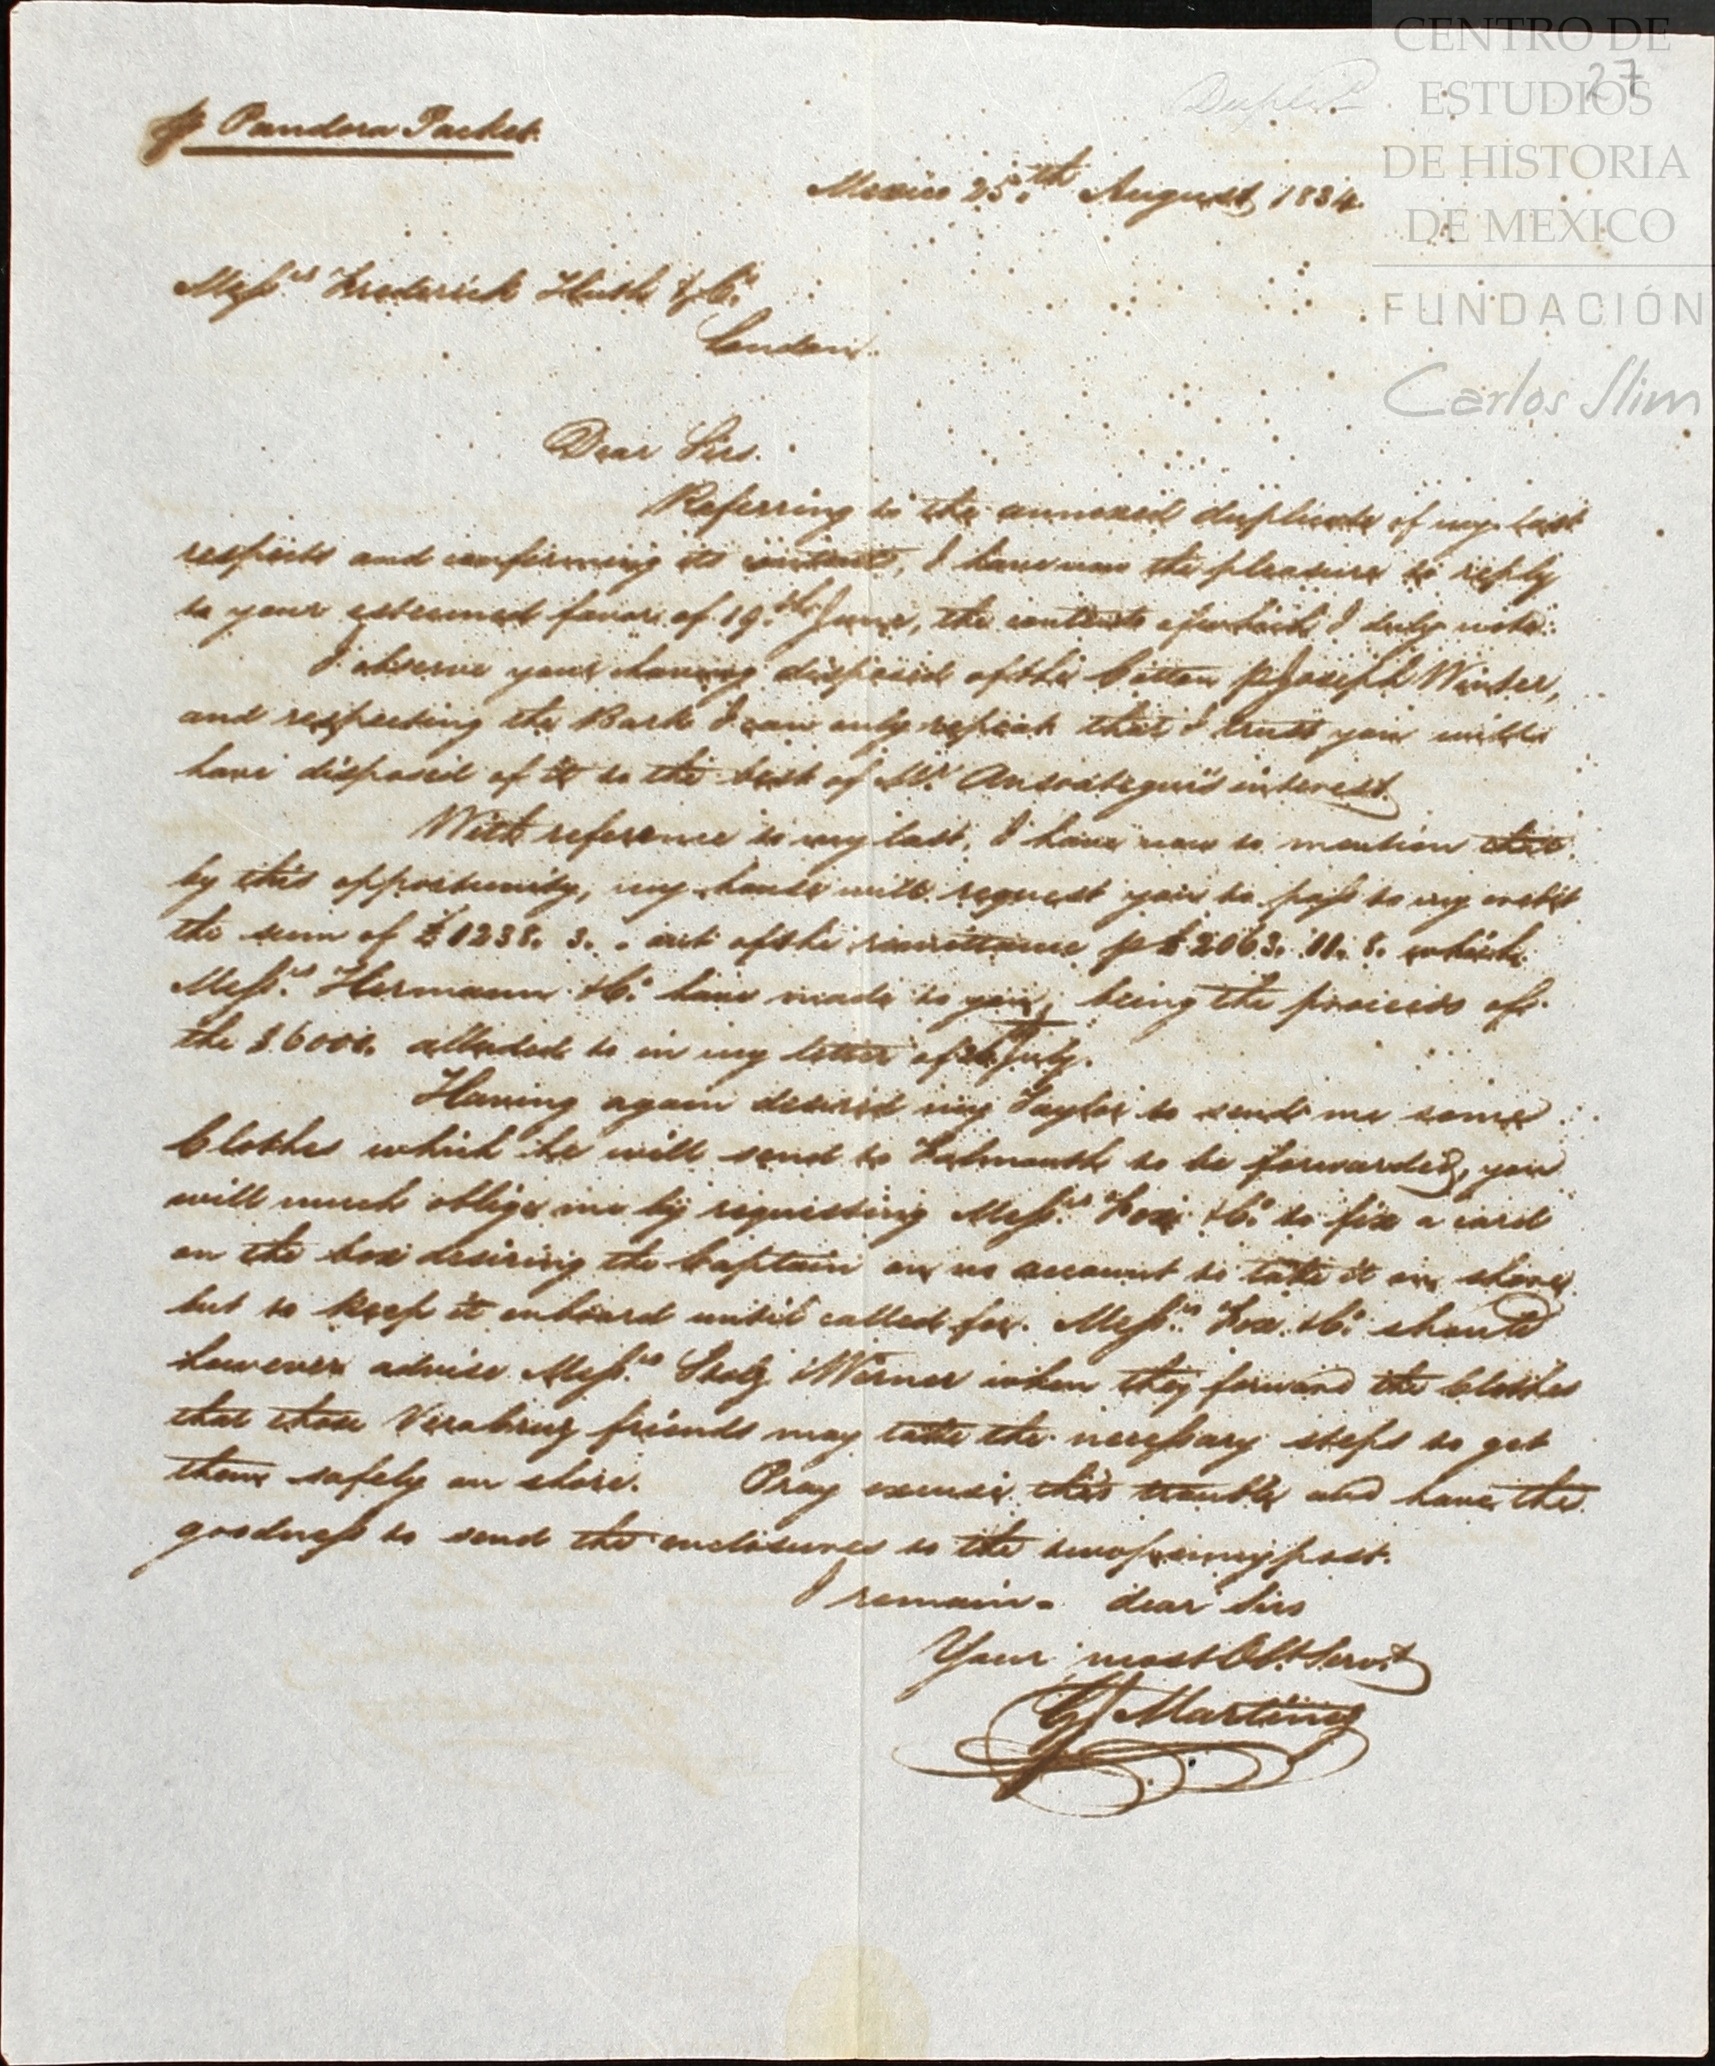 27
Duplte
CENTRO DE
ESTUDIOS
DE HISTORIA
DE MEXICO
FUNDACIÓN
Carlos Slim
p Pandora Packet.
Mexico 25.th August, 1834.
Messrs Frederick Huth & Co.
London.
Dear Sirs.
Referring to the annexed duplicate of my last
respects and confirming its contents, I have now the pleasure to reply
to your esteemed favor of 19.th June, the contents of which I duly note.
I observe your having disposed of the Cotton p Joseph Winter,
and respecting the Bark I can only repeat that I trust you will
have disposed of it to the best of Mr. Ansoategui's interest.
With reference to my last, I have now to mention that
by this opportunity, my house will request you to pass to my credit
the sum of £1238. 3. . out of the remittance p £2063. 11. 8. which
Messrs. Hermann & Co. have made to you, being the proceeds of
the $6000. alluded to in my letter of 26th July.
Having again desired my Taylor to send me some
Clothes which he will send to Falmouth to be forwarded, you
will much oblige me by requesting Messrs. Fox & Co. to fix a card
on the box desiring the Captain on no account to take it on shore
but to keep it onboard until called for. Messrs. Fox & Co. should
however advise Messrs. Stolz Wirner when they forward the Clothes
that those Veracruz friends may take the necessary steps to get
them safely on shore. Pray excuse this trouble and have the
goodness to send the enclosures to the twopenny post.
I remain - dear Sirs
Your most Obt. Servt
Martinez